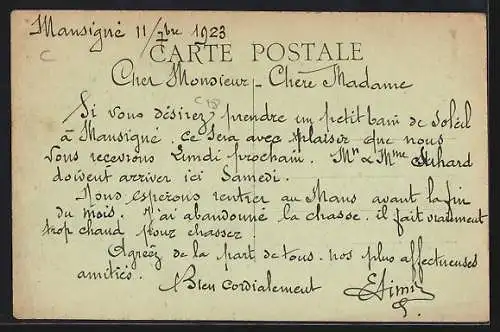 Mansigné 11/7bre 1923
CARTE POSTALE
Cher Monsieur - Chère Madame
Si vous désirez prendre un petit bain de soleil
à Mansigné, ce sera avec plaisir que nous
vous recevrons Lundi prochain. Mr & Mme
doivent arriver ici Samedi.
Nous espérons rentrer au Mans avant la fin
du mois. J'ai abandonné la chasse. il fait vraiment
trop chaud pour chasser
Agréez de la part de tous, nos plus affectueuses
amitiés.
Bien cordialement